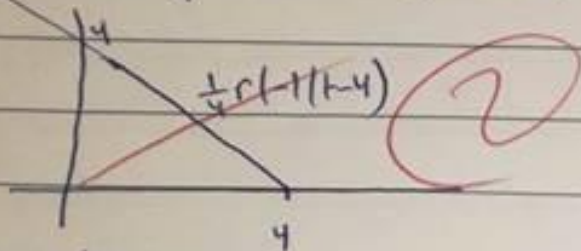 4
1/4 r(-1(1-4)
2
4